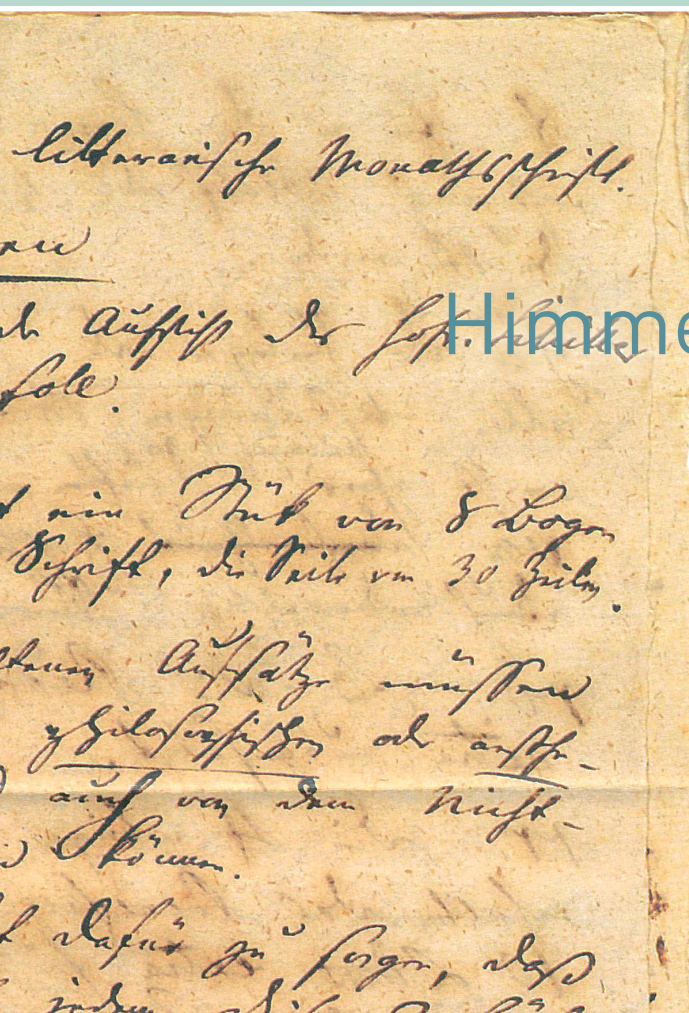 litterarische Monathsschrift.
en
Aufsicht des Hofr. Schiller
Himme
soll.
ein Stük von 8 Bogen
Schrift, die Seite von 30 Zeilen.
Aufsätze müssen
philosophischen oder aesthe-
auch von dem Nicht-
können.
dafür zu sorgen, daß
jedem